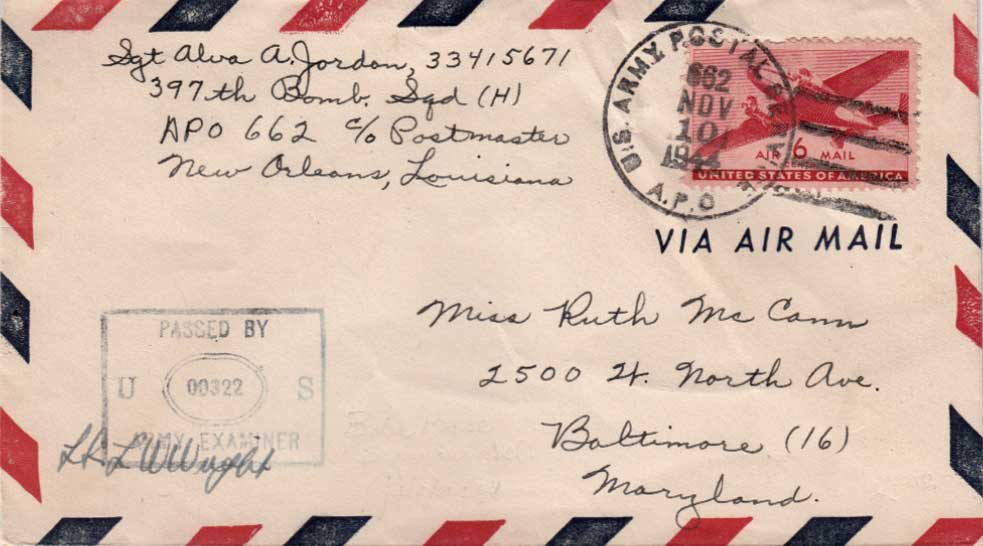 Sgt Alva A. Jordan, 33415671
397th Bomb. Sqd (H)
APO 662 c/o Postmaster
New Orleans, Louisiana
U.S. ARMY POSTAL SERVICE
662
NOV
10
1944
A.P.O
AIR 6 MAIL
UNITED STATES OF AMERICA
VIA AIR MAIL
Miss Ruth McCann
2500 W. North Ave.
Baltimore (16)
Maryland.
PASSED BY
U 00322 S
ARMY EXAMINER
Wright